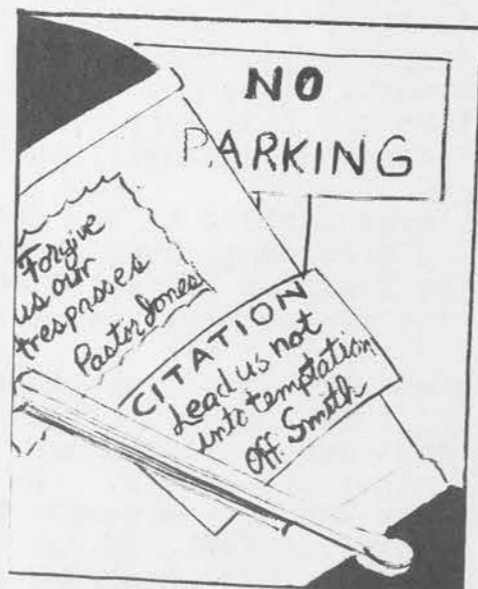 NO
PARKING
Forgive
us our
trespasses
Pastor Jones
CITATION
Lead us not
into temptation
Off. Smith